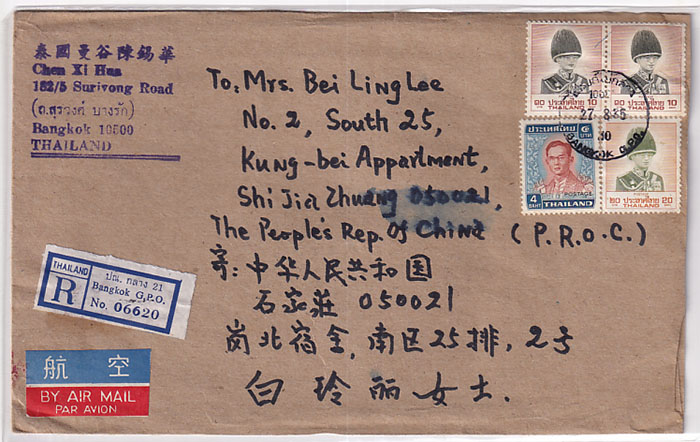 泰國曼谷陳錫華
Chen Xi Hua
182/5 Surivong Road
(ถ.สุรวงศ์ บางรัก)
Bangkok 10500
THAILAND
To: Mrs. Bei Ling Lee
No. 2, South 25,
Kung-bei Appartment,
Shi Jia Zhuang 050021,
The People's Rep. Of China (P.R.O.C.)
寄: 中华人民共和国
石家莊 050021
岗北宿舍, 南区25排, 2号
白玲丽女士.
๑๐ ประเทศไทย 10
THAILAND
๑๐ ประเทศไทย 10
THAILAND
27
BANGKOK G.P.O.
ประเทศไทย ๔ บาท
POSTAGE
4 BAHT THAILAND
๒๐ ประเทศไทย 20
THAILAND
THAILAND
R
ปณ. กลาง 21
Bangkok G.P.O.
No. 06620
航空
BY AIR MAIL
PAR AVION